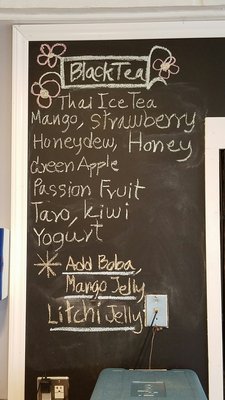 Black Tea
Thai Ice Tea
Mango, Strawberry
Honeydew, Honey
Green Apple
Passion Fruit
Taro, kiwi
Yogurt
Add Boba,
Mango Jelly
Litchi Jelly